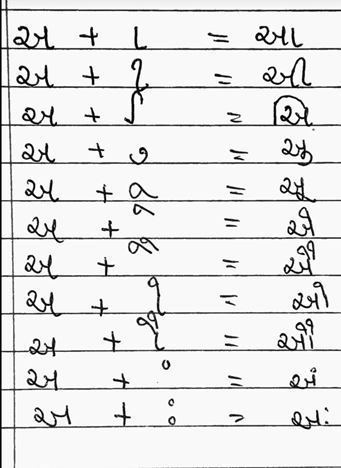 અ + ા = આ
અ + ી = અી
અ + િ = અિ
અ + ુ = અુ
અ + ૂ = અૂ
અ + ે = એ
અ + ૈ = ઐ
અ + ો = ઓ
અ + ૌ = ઔ
અ + ં = અં
અ + ઃ = અઃ